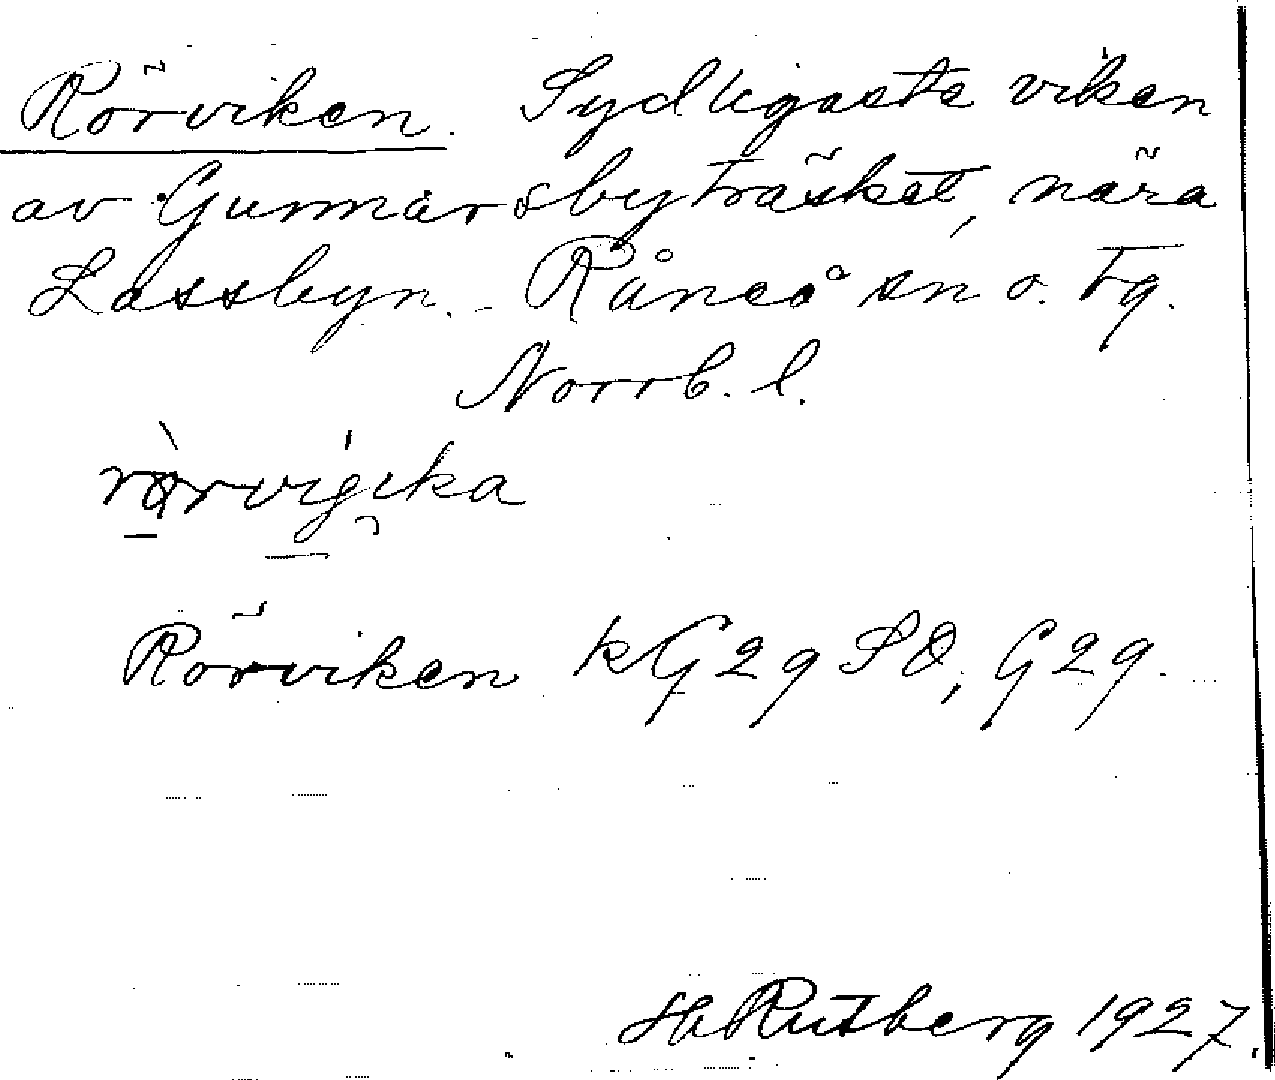 Rörviken. Sydligaste viken
av Gunnarsbyträsket, nära
Lassbyn. - Råneå sn o. tg.
Norrb. l.
Rörviken kG29SO, G29.
Hb Rutberg 1927.